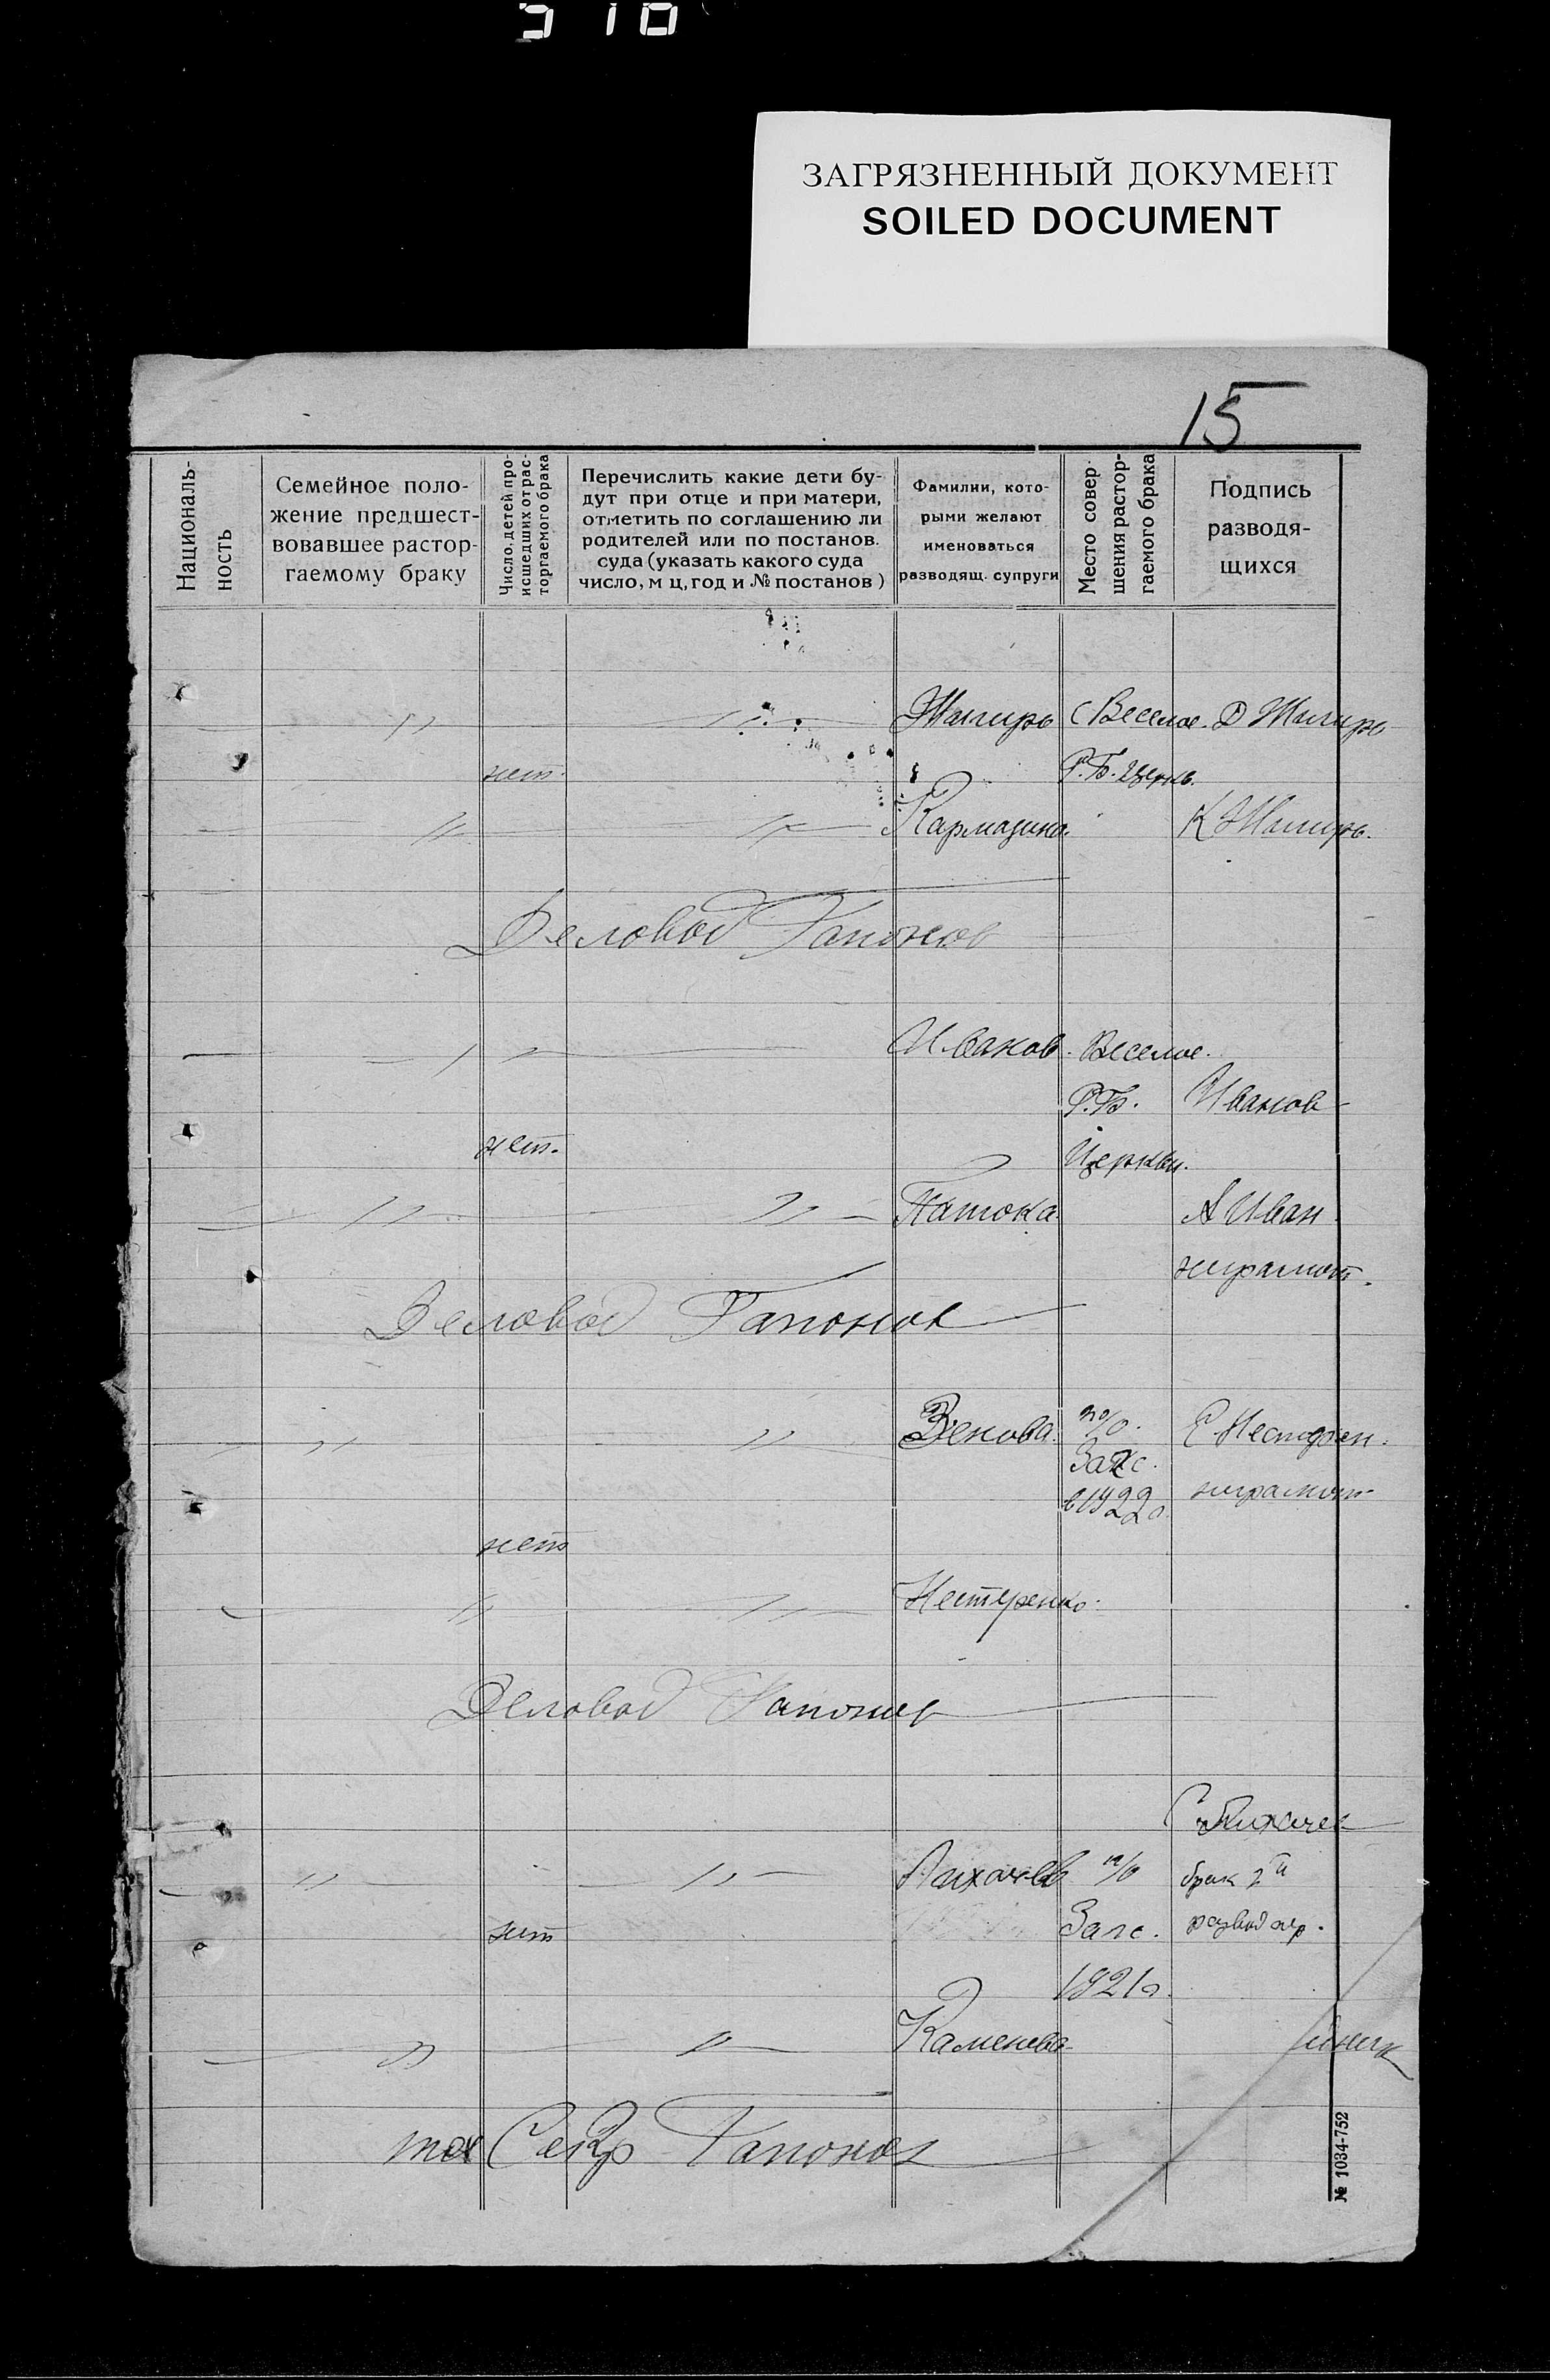 310
ЗАГРЯЗНЕННЫЙ ДОКУМЕНТ
SOILED DOCUMENT
15
Националь-
ность
Семейное поло-
жение предшест-
вовавшее растор-
гаемому браку
Число детей про-
исшедших от рас-
торгаемого брака
Перечислить какие дети бу-
дут при отце и при матери,
отметить по соглашению ли
родителей или по постанов.
суда (указать какого суда
число, м ц, год и № постанов)
Фамилии, кото-
рыми желают
именоваться
разводящ. супруги
Место совер-
шения растор-
гаемого брака
Подпись
разводя-
щихся
" " с Веселое.
нет. Р.Б.
" " Кармазина.
Деловод Гапонов
Иванов. Веселое.
Р.Б. Иванов
нет. Церкви.
" " Патока. А Иван
Деловод Гапонов
" " Зенова. п/о.
Загс.
в 1922г.
нет
" " Нестеренко.
Деловод Гапонов
С Лихачев
" " Лихачев п/о брак 2й
нет Загс. развод пер.
1921г.
" " Каменева
Секр Гапонов
№ 1034-752